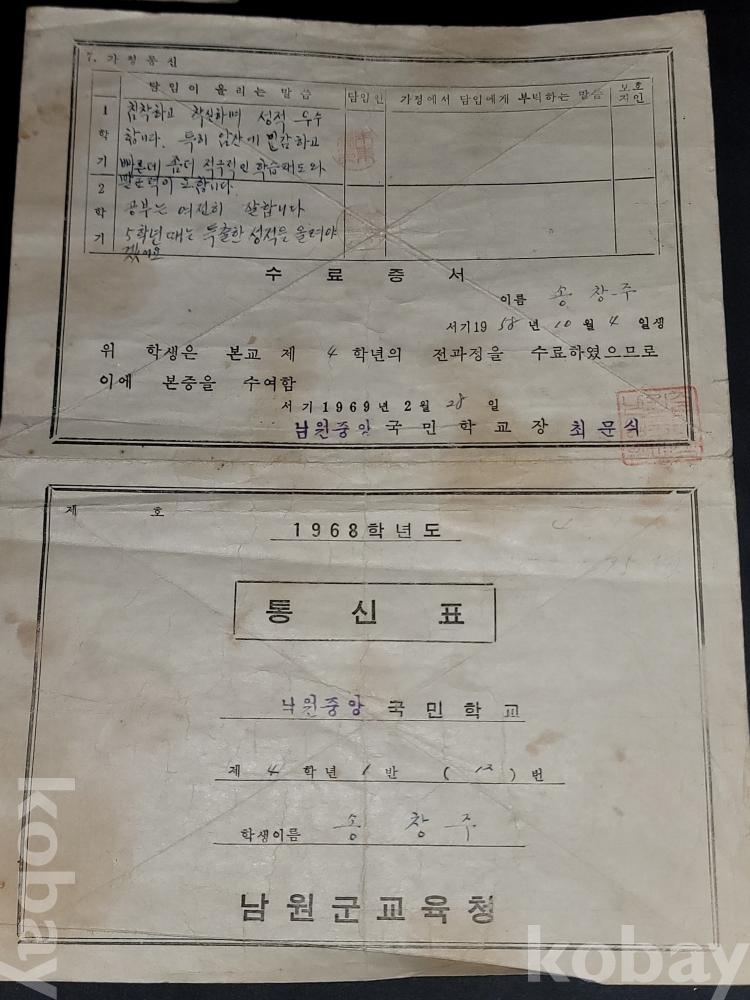 7. 가정통신
담임이 올리는 말씀 담임인 가정에서 담임에게 부탁하는 말씀 보호자인
1학기
침착하고 착실하며 성적 우수
합니다. 특히 암산에 민감하고
빠른데 좀더 적극적인 학습태도와
발표력이 요합니다.
2학기
공부는 여전히 잘합니다
5학년 때는 특출한 성적을 올려야
겠어요
수료증서
이름 송창주
서기 1958년 10월 4일생
위 학생은 본교 제 4 학년의 전과정을 수료하였으므로
이에 본증을 수여함
서기 1969년 2월 28일
남원중앙국민학교장 최문식
제 호
1968학년도
통신표
남원중앙국민학교
제 4 학년 1 반 (12) 번
학생이름 송창주
남원군교육청
kobay
kobay